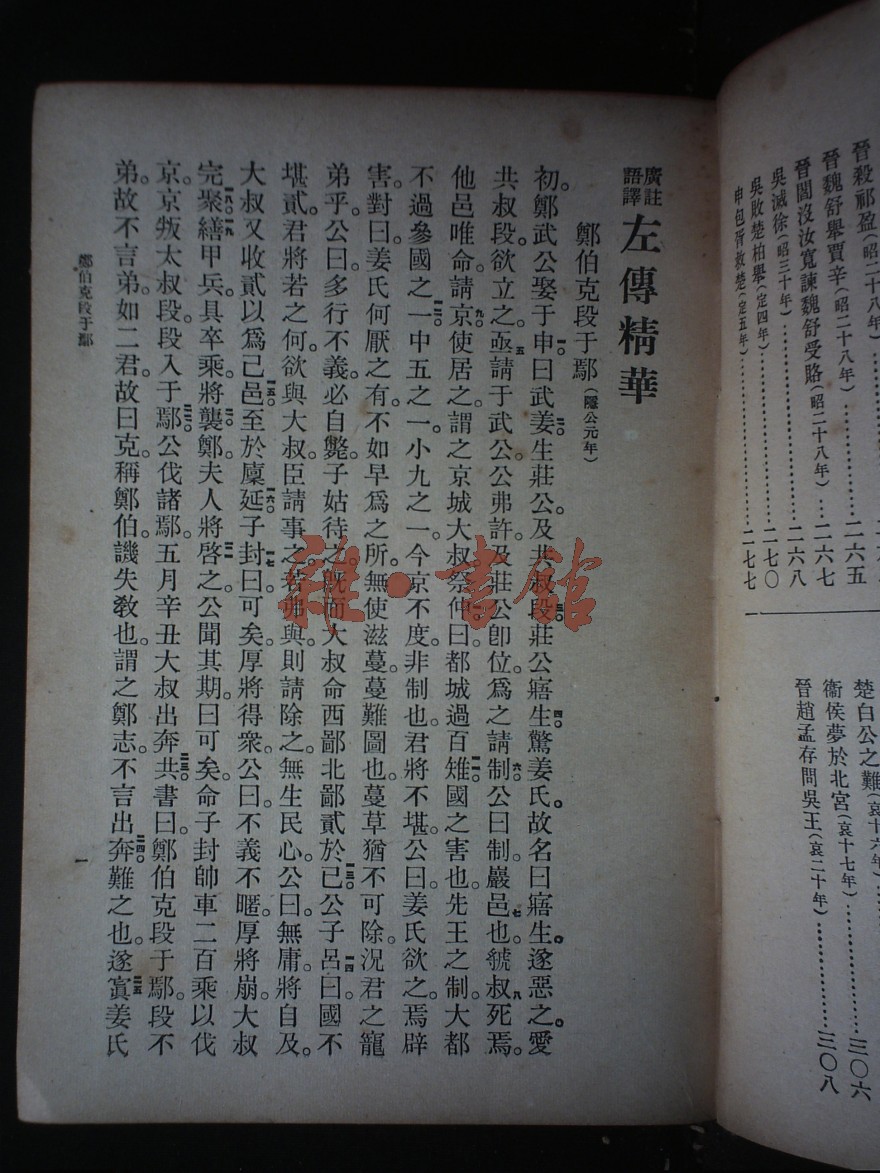 晉殺祁盈(昭二十八年)
晉魏舒舉賈辛(昭二十八年)………二六五
晉閻沒汝寬諫魏舒受賂(昭二十八年)…二六七
吳滅徐(昭三十年)………二六八
吳敗楚柏舉(定四年)………二七〇
申包胥救楚(定五年)………二七七
楚白公之難(哀十六年)
衞侯夢於北宮(哀十七年)………三〇六
晉趙孟存問吳王(哀二十年)………三〇八
一
廣註語譯 左傳精華
鄭伯克段于鄢(隱公元年)
初。鄭武公娶于申曰武姜生莊公及共叔段莊公寤生驚姜氏。故名曰寤生。遂惡之。愛
共叔段。欲立之。亟請于武公。公弗許。及莊公卽位。爲之請制公曰制巖邑也。虢叔死焉。
他邑唯命。請京使居之。謂之京城大叔。祭仲曰都城過百雉國之害也。先王之制。大都
不過參國之一。中五之一。小九之一。今京不度。非制也。君將不堪。公曰。姜氏欲之。焉辟
害。對曰。姜氏何厭之有。不如早爲之所。無使滋蔓。蔓難圖也。蔓草猶不可除。況君之寵
弟乎。公曰。多行不義。必自斃。子姑待之。旣而大叔命西鄙北鄙貳於己公子呂曰。國不
堪貳。君將若之何。欲與大叔。臣請事之。若弗與。則請除之。無生民心。公曰。無庸。將自及。
大叔又收貳以爲己邑至於廩延子封曰可矣。厚將得衆。公曰。不義不暱。厚將崩。大叔
完聚繕甲兵。具卒乘。將襲鄭。夫人將啓之。公聞其期。曰可矣。命子封帥車二百乘以伐
京。京叛大叔段段入于鄢公伐諸鄢。五月辛丑大叔出奔共書曰。鄭伯克段于鄢。段不
弟。故不言弟。如二君。故曰克。稱鄭伯。譏失敎也。謂之鄭志。不言出奔難之也。遂寘姜氏
鄭伯克段于鄢
一
雜·書館